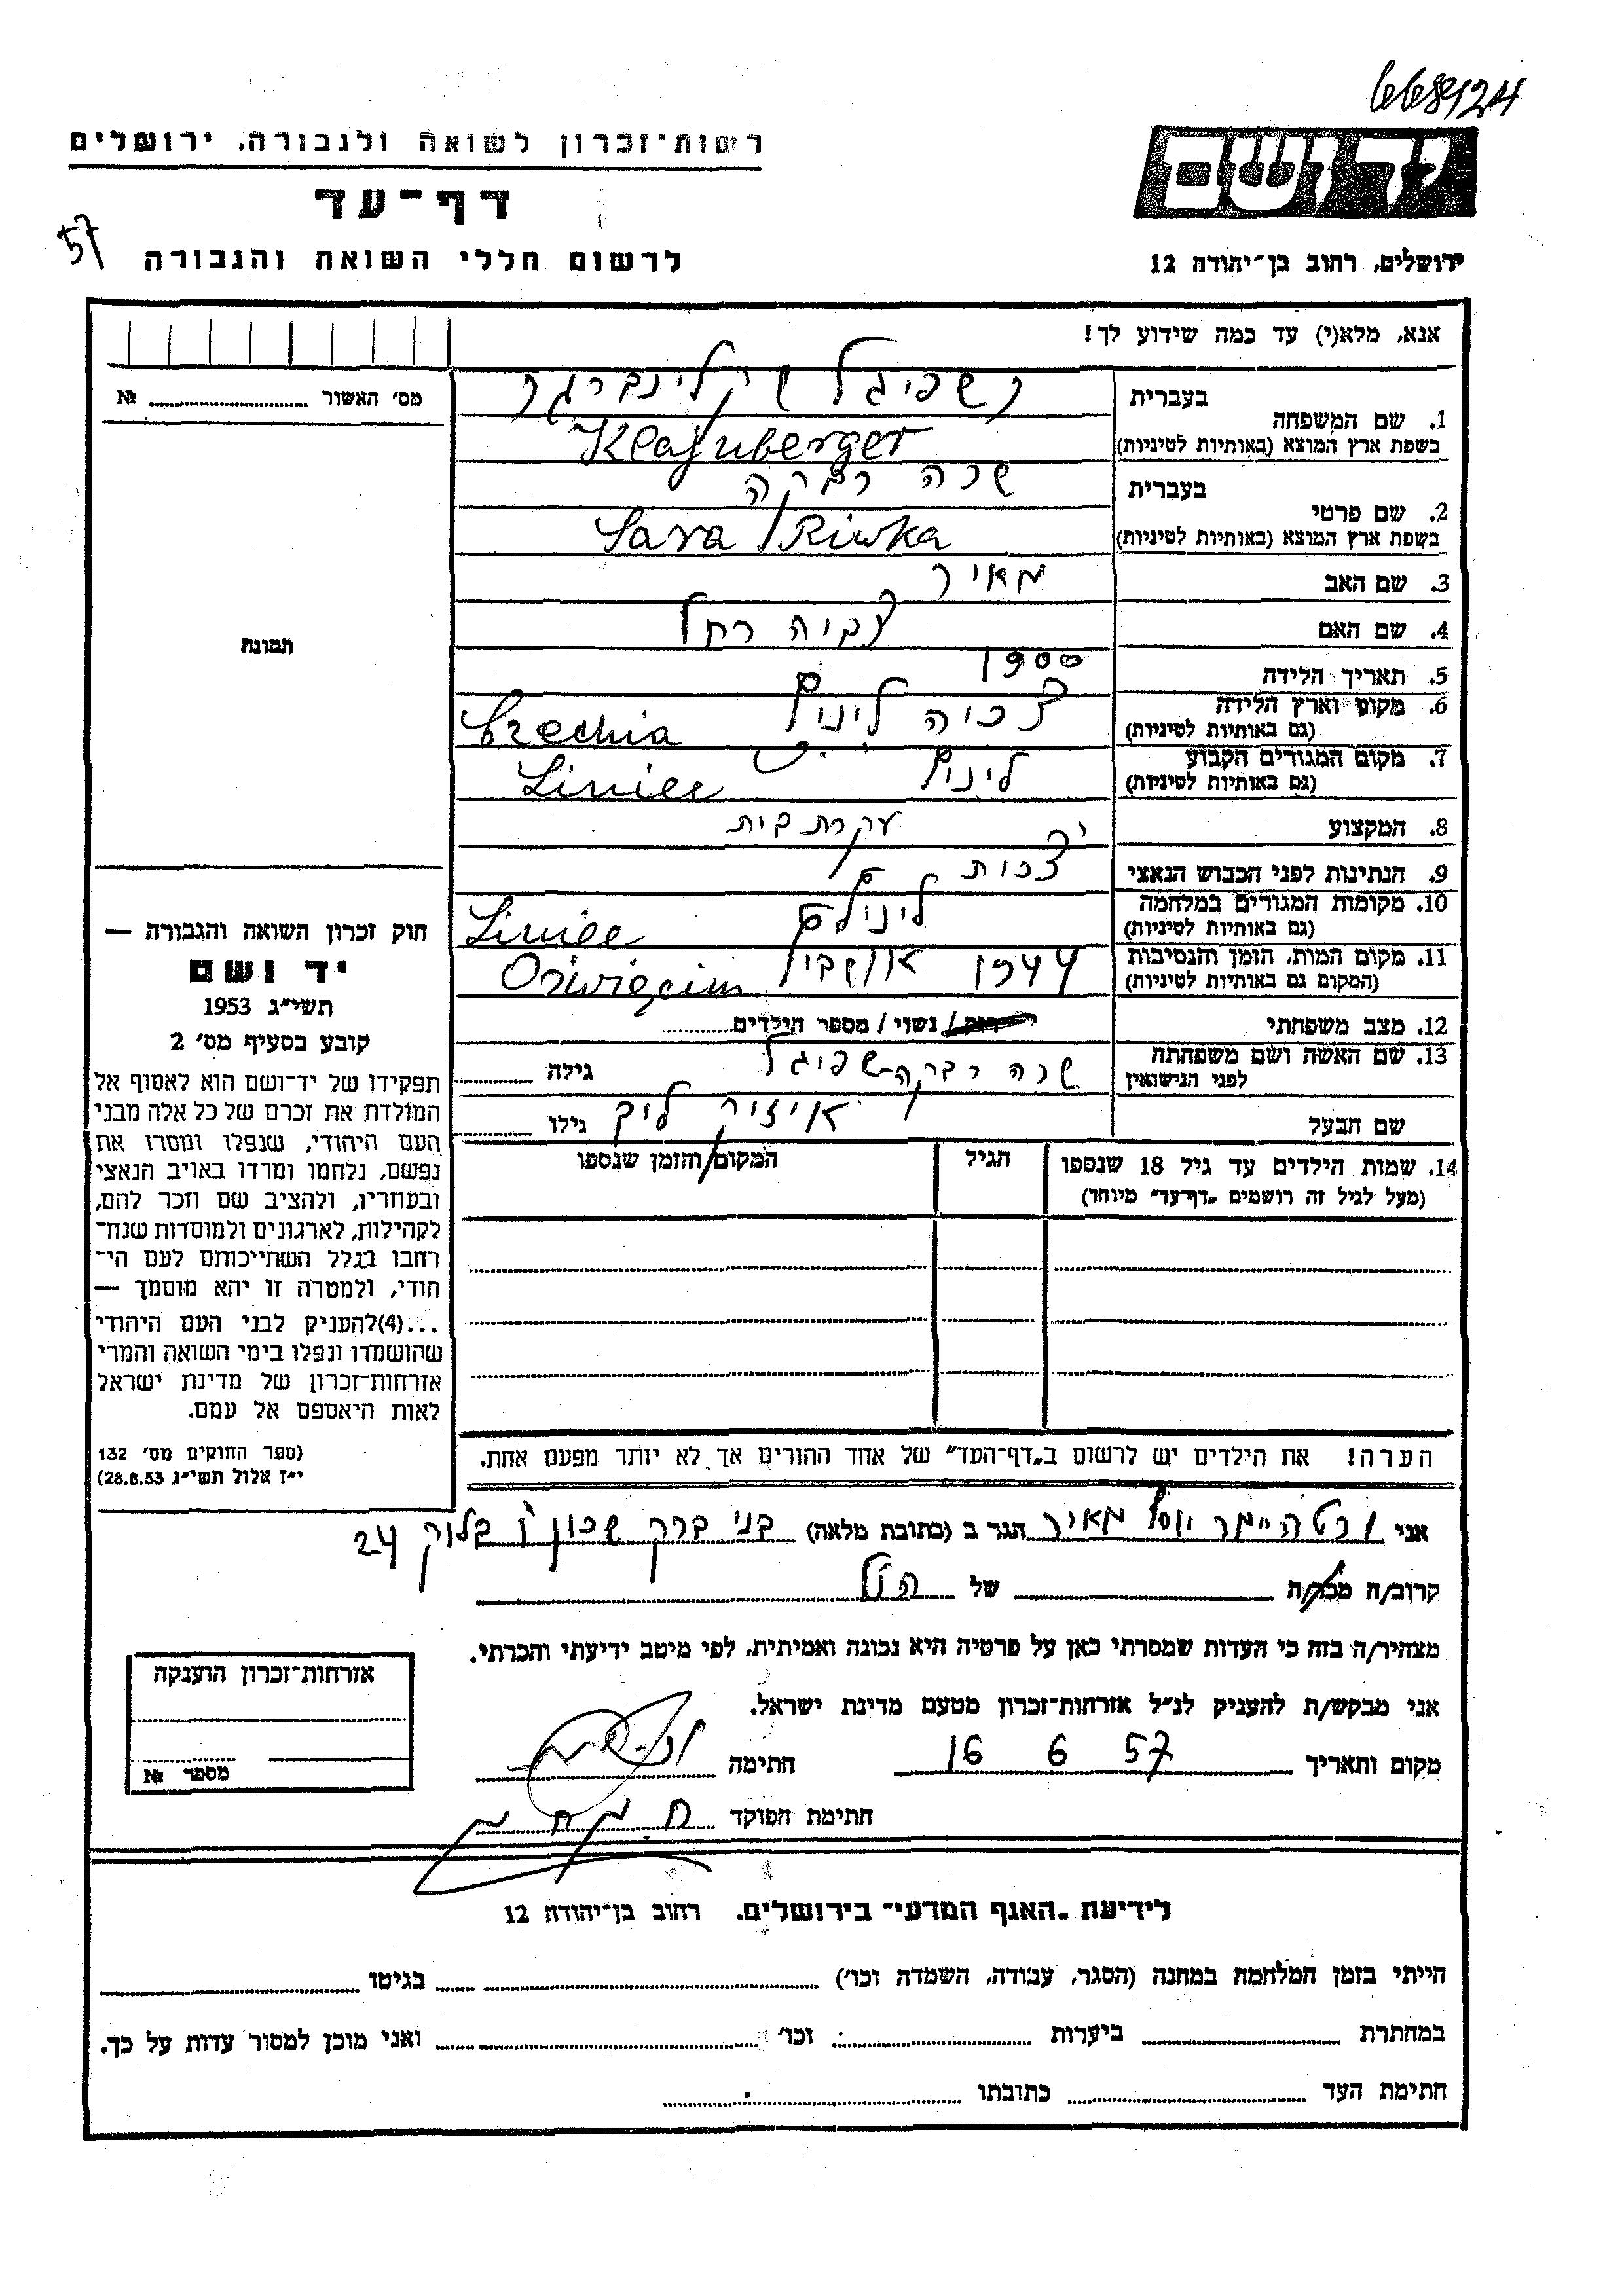 668124
רשות-זכרון לשואה ולגבורה, ירושלים
יד ושם
דף-עד
57
לרשום חללי השואה והגבורה
ירושלים, רחוב בן-יהודה 12
אנא, מלא(י) עד כמה שידוע לך!
מס' האשור № 
בעברית
1. שם המשפחה
שפיגל קלינברגר
בשפת ארץ המוצא (באותיות לטיניות) Klajnberger
בעברית שרה רבקה
2. שם פרטי
בשפת ארץ המוצא (באותיות לטיניות) Sara Riwka
3. שם האב מאיר
4. שם האם צביה רחל
תמונה
5. תאריך הלידה 1900
6. מקום וארץ הלידה
(גם באותיות לטיניות) Czechia
7. מקום המגורים הקבוע
(גם באותיות לטיניות)
8. המקצוע עקרת בית
9. הנתינות לפני הכבוש הנאצי צכית
10. מקומות המגורים במלחמה
(גם באותיות לטיניות)
11. מקום המות, הזמן והנסיבות 1944
(המקום גם באותיות לטיניות) Oświęcim
12. מצב משפחתי / נשוי / מספר הילדים
13. שם האשה ושם משפחתה שרה רבקה שפיגל גילה
לפני הנישואין
שם הבעל איזיק גילו
14. שמות הילדים עד גיל 18 שנספו הגיל המקום והזמן שנספו
(מעל לגיל זה רושמים „דף-עד" מיוחד)
חוק זכרון השואה והגבורה —
יד ושם
תשי"ג 1953
קובע בסעיף מס' 2
תפקידו של יד-ושם הוא לאסוף אל
המולדת את זכרם של כל אלה מבני
העם היהודי, שנפלו ומסרו את
נפשם, נלחמו ומרדו באויב הנאצי
ובעוזריו, ולהציב שם וזכר להם,
לקהילות, לארגונים ולמוסדות שנח-
רבו בגלל השתייכותם לעם הי-
הודי, ולמטרה זו יהא מוסמך —
...(4)להעניק לבני העם היהודי
שהושמדו ונפלו בימי השואה והמרי
אזרחות-זכרון של מדינת ישראל
לאות היאספם אל עמם.
(ספר החוקים מס' 132
י"ז אלול תשי"ג 28.8.53)
הערה! את הילדים יש לרשום ב„דף-העד" של אחד ההורים אך לא יותר מפעם אחת.
אני ורטהיימר מאיר הגר ב (כתובת מלאה) בני ברק שכון ו בלוק 24
קרוב/ה מכר/ה של הנ"ל
מצהיר/ה בזה כי העדות שמסרתי כאן על פרטיה היא נכונה ואמיתית, לפי מיטב ידיעתי והכרתי.
אני מבקש/ת להעניק לנ"ל אזרחות-זכרון מטעם מדינת ישראל.
מקום ותאריך 16 6 57 חתימה
חתימת הפוקד
אזרחות-זכרון הוענקה
מספר №
לידיעת „האגף המדעי" בירושלים. רחוב בן-יהודה 12
הייתי בזמן המלחמה במחנה (הסגר, עבודה, השמדה וכו') בגיטו
במחתרת ביערות וכו' ואני מוכן למסור עדות על כך.
חתימת העד כתובתו